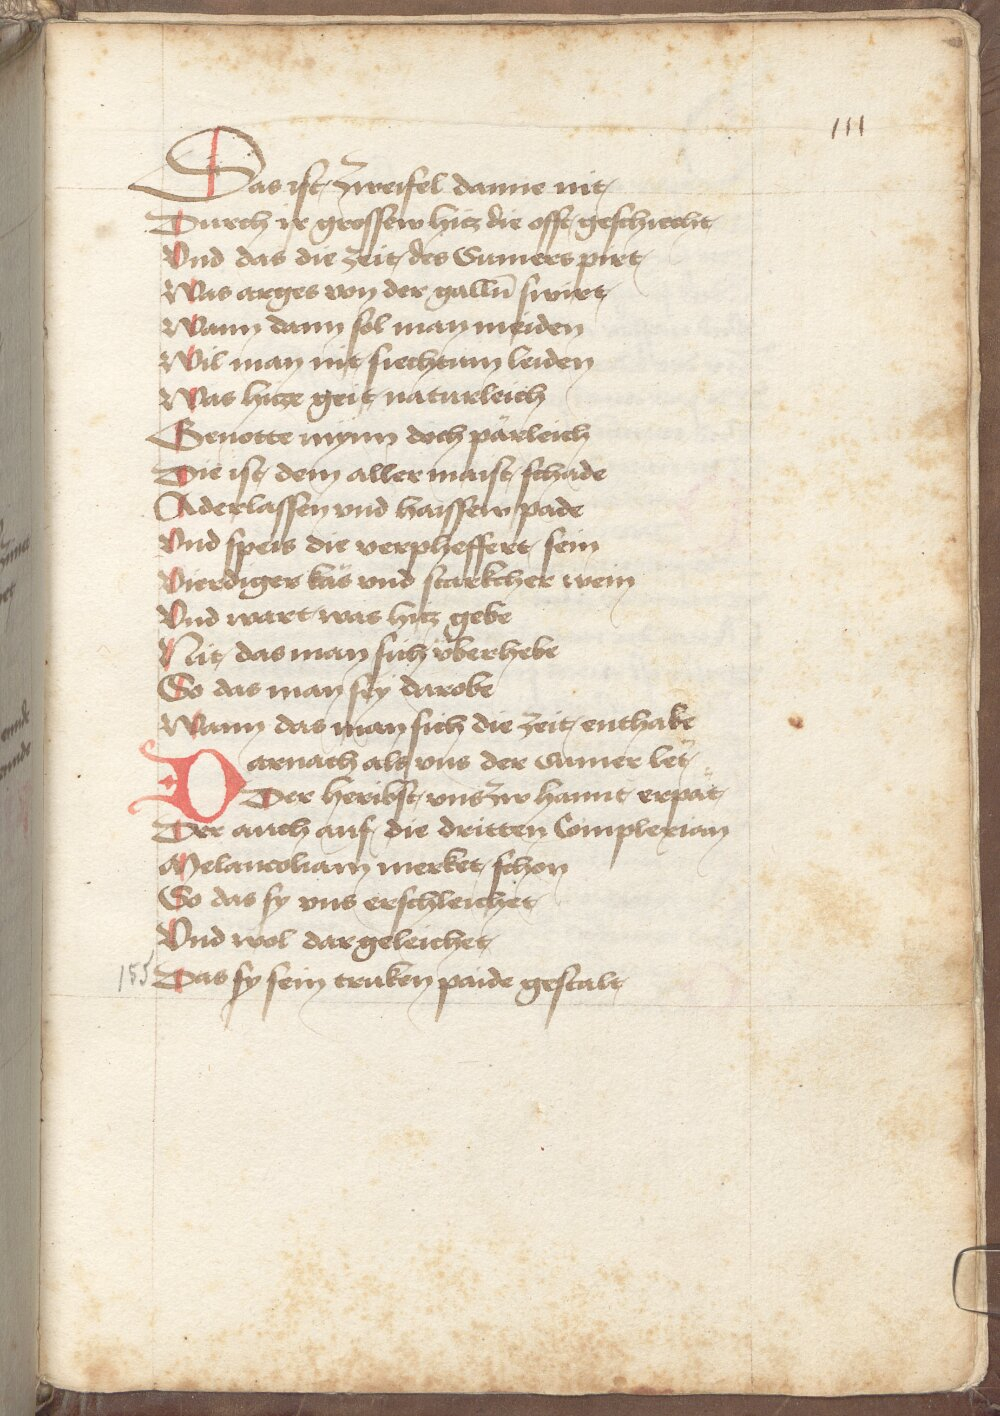 111
Das ist zweifel danne nit
Durch ir grossew hitz die offt geschiecht
Vnd das die zeit des Sumers pirt
Was arges von der gallū swirt
Wann dann sol man meiden
Wil man nit siechtum leiden
Was hitze geit naturleich
Genotte mynn doch pärleich
Die ist dem aller maist schade
Aderlassen vnd haissew pade
Vnd speis die verpheffert sein
Vierdiger käs vnd starkcher wein
Vnd wart was hitz gebe
Nit das man sich vberhebe
So das man sey darobe
Wann das man sich die zeit enthabe
Darnach als vns der Sumer let
Der heribst vns zw hannt erpät
Der auch auf die dritten Complexian
Melancoliam merket schon
So das sy vns erschleichet
Vnd wol dar geleichet
155 Das sy sein truken paide gestalt